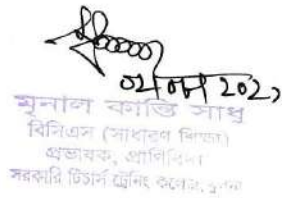 মৃনাল কান্তি সাধু
বিসিএস (সাধারণ শিক্ষা)
প্রভাষক, প্রাণিবিদ্যা
সরকারি টিচার্স ট্রেনিং কলেজ, খুলনা